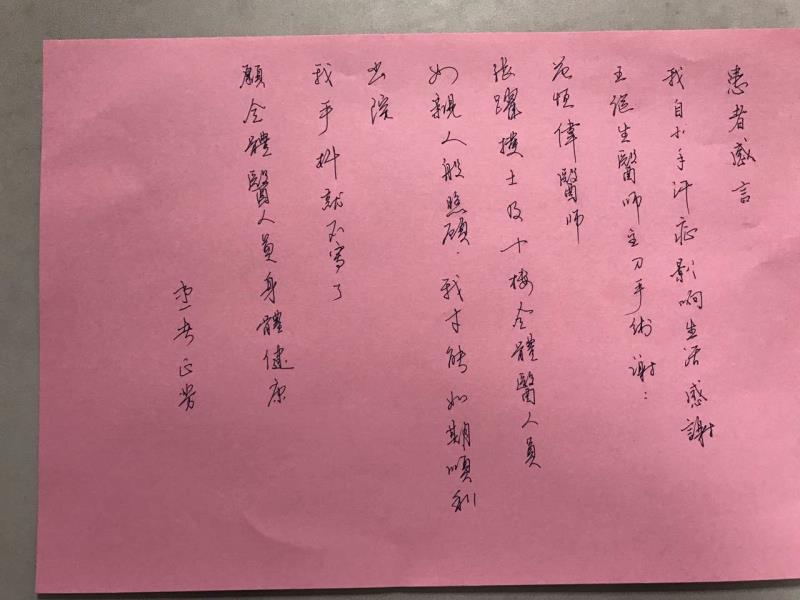 患者感言
我自小手汗症影响生活感謝
王繼生醫師主刀手術謝:
范恒偉醫師
張躍護士及十樓全體醫人員
如親人般照顧.我才能如期順利
出院
我手抖就不寫了
願全體醫人員身體健康